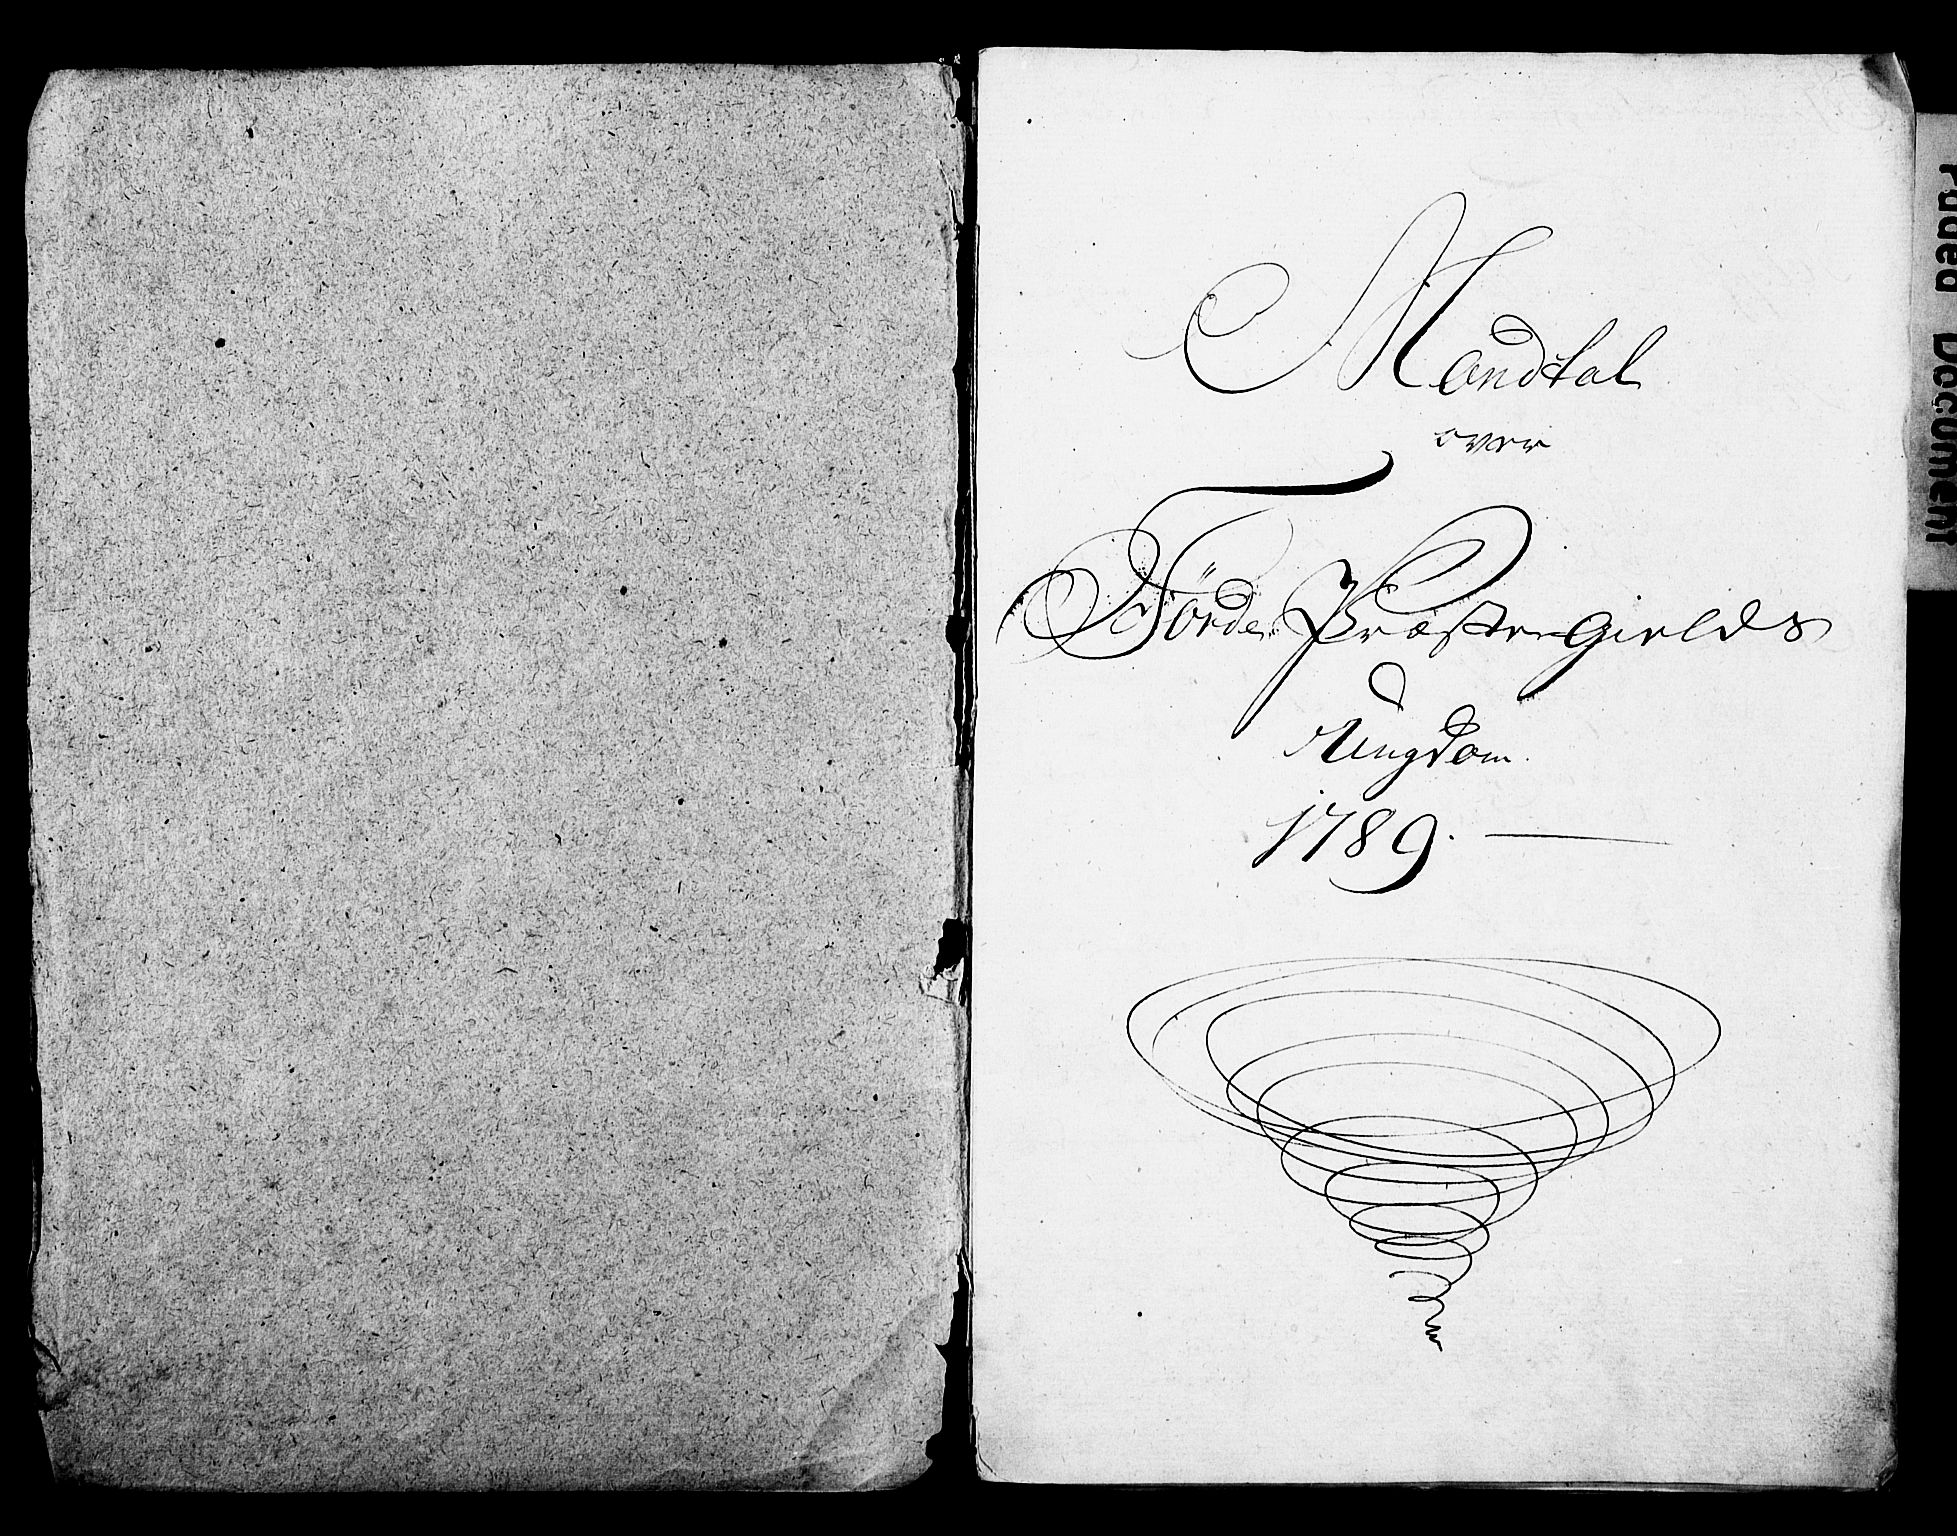 Mandtal
over
Förde Præste-Gields
Ungdom.
1789.
Faded Document